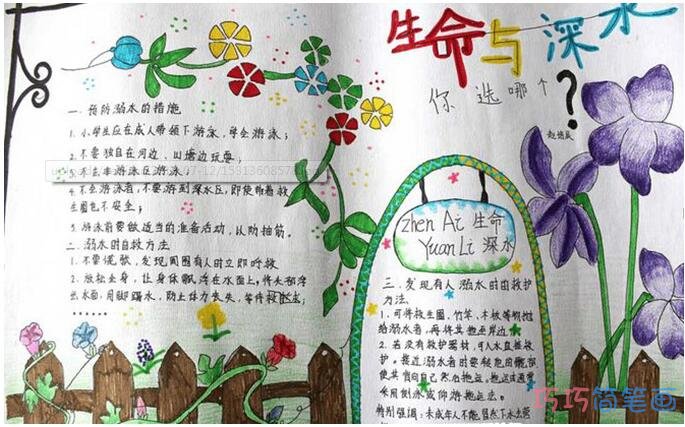 生命与深水
你选哪个?
一.预防溺水的措施
1.小学生应在成人带领下游泳,学会游泳;
2.不要独自在河边、山塘边玩耍;
3.不去非游泳区游泳;
4.不会游泳者,不要游到深水区,即使带着救
生圈也不安全;
5.游泳前要做适当的准备活动,以防抽筋。
二.溺水时的自救方法
1.不要慌张,发现周围有人时立即呼救
2.放松全身,让身体飘浮在水面上,将头部浮
出水面,用脚踢水,防止体力丧失,等待救援;
……
zhen Ai 生命
Yuan Li 深水
三.发现有人溺水时的救护
方法.
1.可将救生圈、竹竿、木板等物抛
给溺水者,再将其拖至岸边;
2.若没有救护器材,可入水直接救
护。接近溺水者时要转动他的髋部
使其背向自己然后拖运。拖运时通常
采用侧泳或仰泳拖运法。
特别强调:未成年人不能
下水去
巧巧简笔画